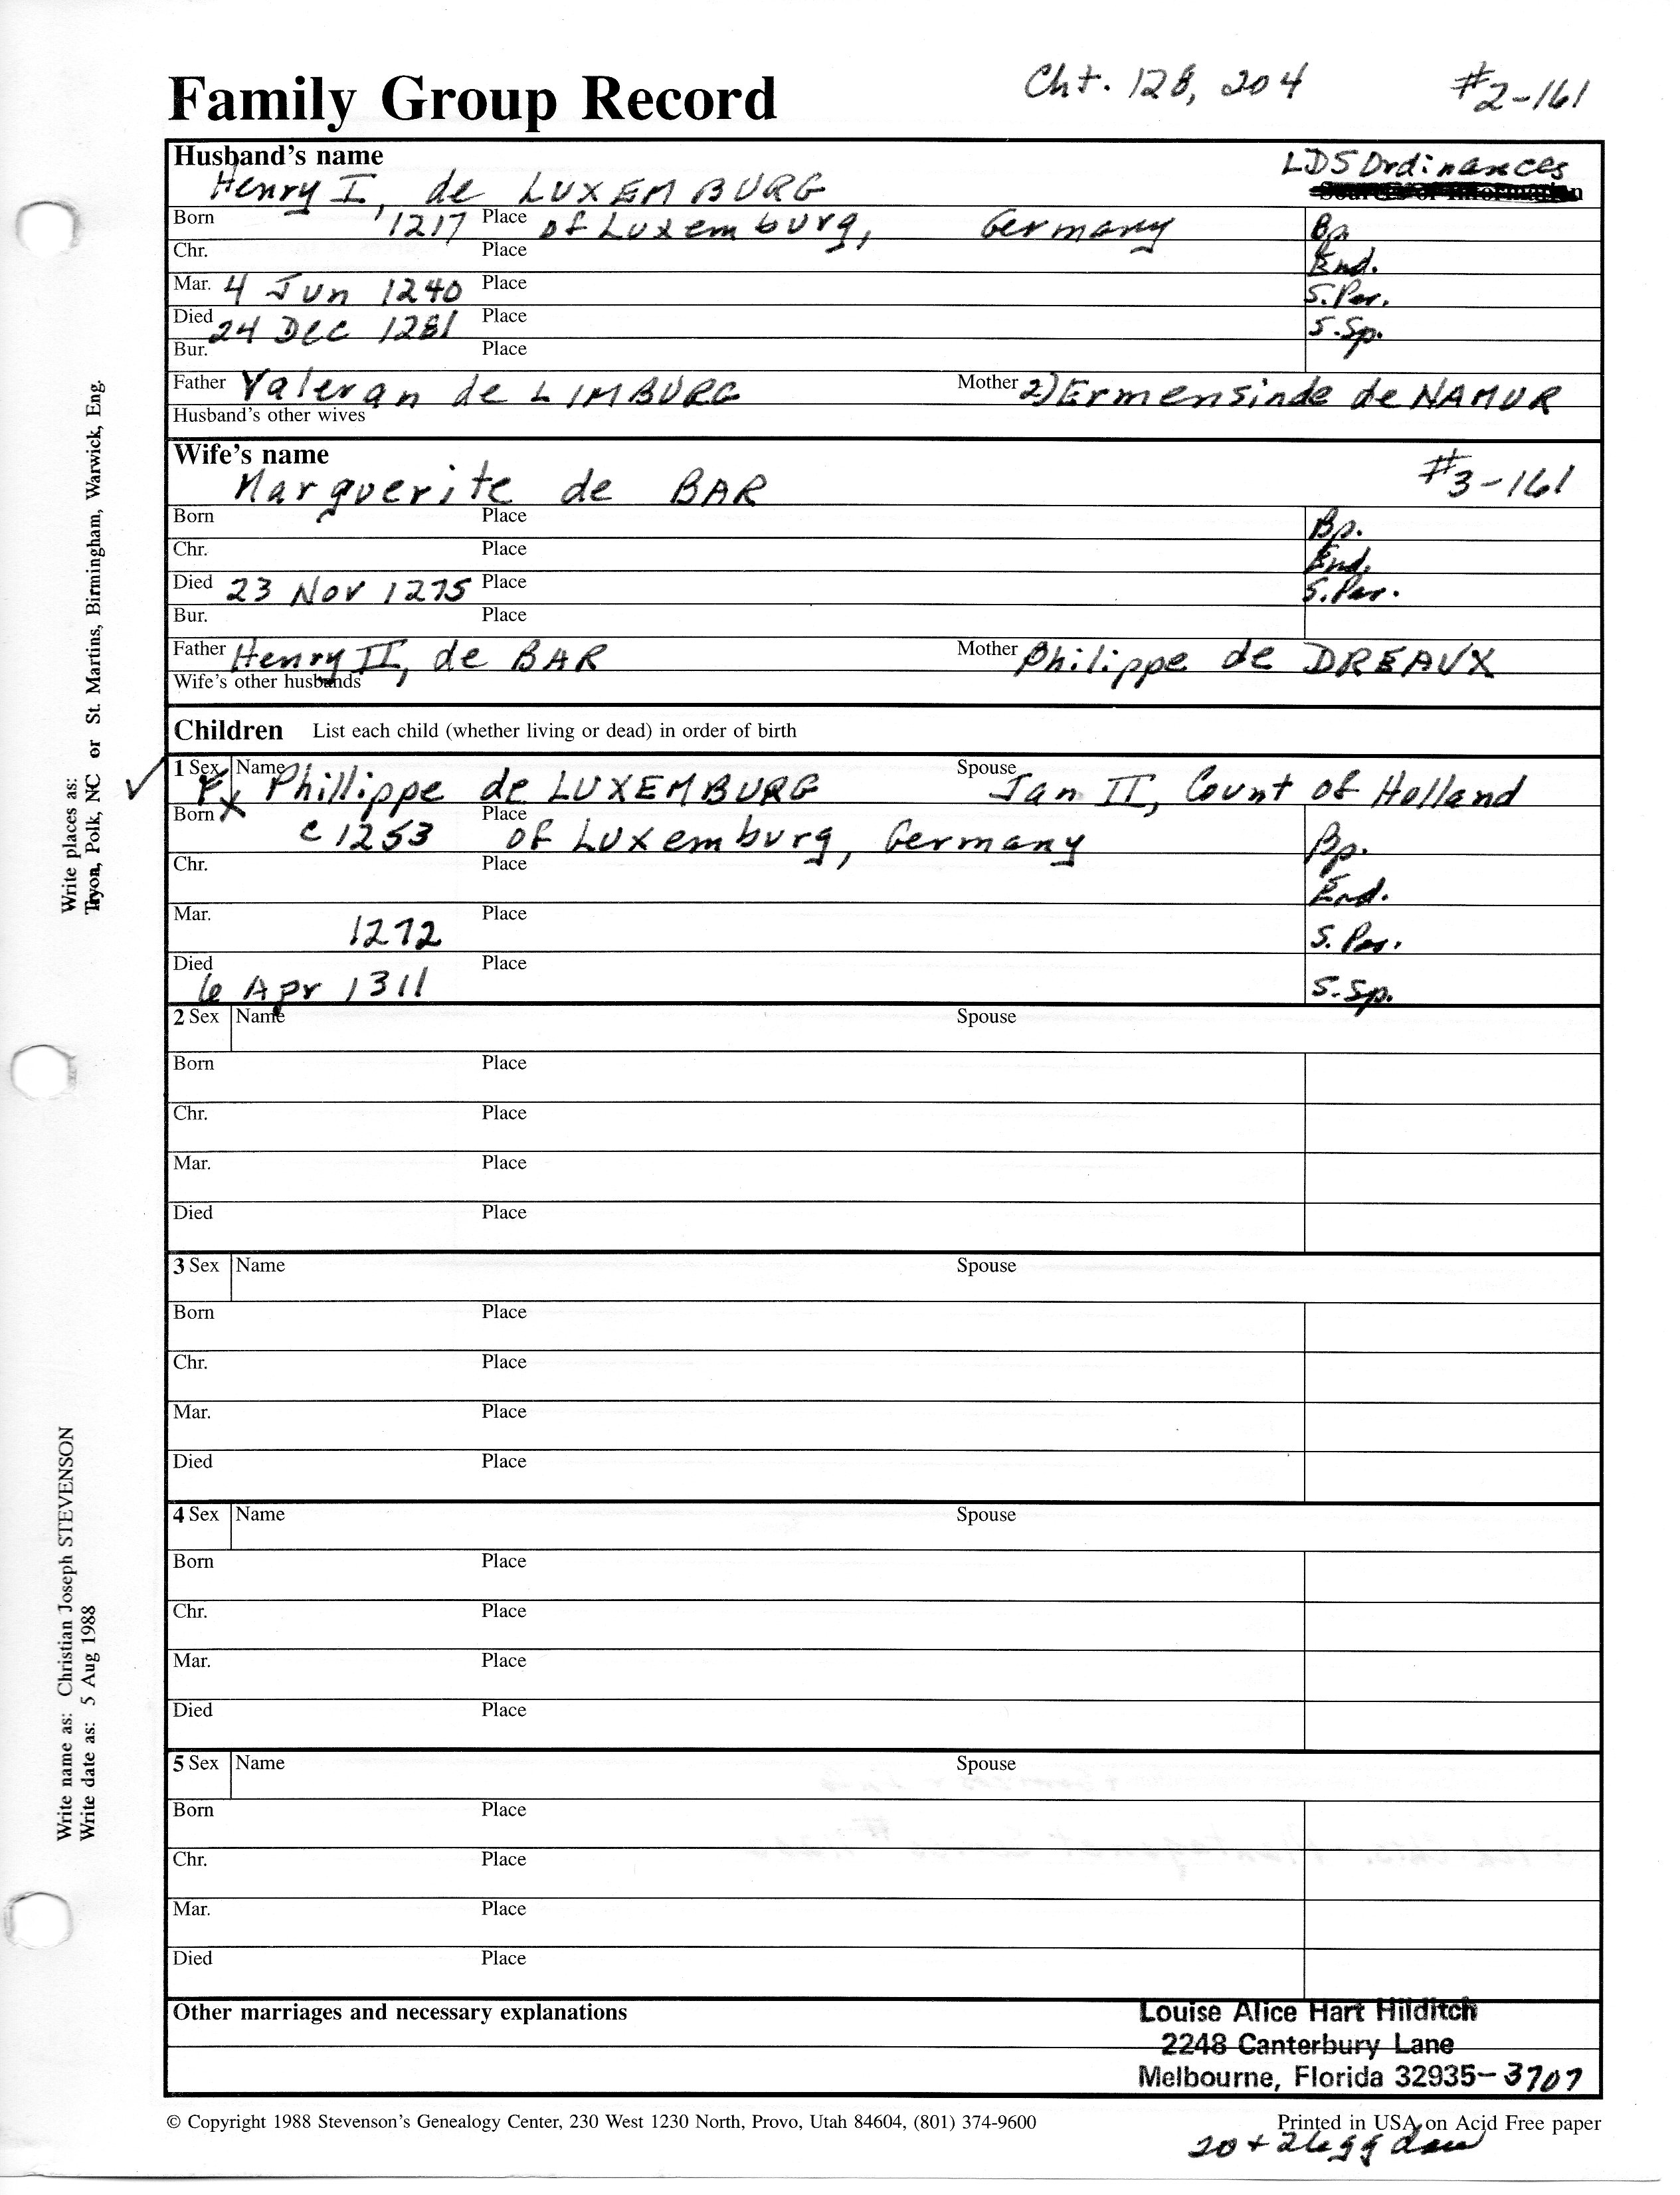 Family Group Record Cht. 128, 204 #2-161
Husband's name LDS Ordinances
Henry I, de LUXEMBURG
Born 1217 Place of Luxemburg, Germany Bp.
Chr. Place End.
Mar. 4 Jun 1240 Place S. Par.
Died 24 Dec 1281 Place S. Sp.
Bur. Place
Father Valeran de LIMBURG Mother 2) Ermensinde de NAMUR
Husband's other wives
Wife's name #3-161
Marguerite de BAR
Born Place Bp.
Chr. Place End.
Died 23 Nov 1275 Place S. Par.
Bur. Place
Father Henry II, de BAR Mother Philippe de DREAUX
Wife's other husbands
Children List each child (whether living or dead) in order of birth
1 Sex F Name Phillippe de LUXEMBURG Spouse Jan II, Count of Holland
Born X c 1253 Place of Luxemburg, Germany Bp.
Chr. Place End.
Mar. 1272 Place S. Par.
Died 6 Apr 1311 Place S. Sp.
2 Sex Name Spouse
Born Place
Chr. Place
Mar. Place
Died Place
3 Sex Name Spouse
Born Place
Chr. Place
Mar. Place
Died Place
4 Sex Name Spouse
Born Place
Chr. Place
Mar. Place
Died Place
5 Sex Name Spouse
Born Place
Chr. Place
Mar. Place
Died Place
Other marriages and necessary explanations
Louise Alice Hart Hilditch
2248 Canterbury Lane
Melbourne, Florida 32935-3707
© Copyright 1988 Stevenson's Genealogy Center, 230 West 1230 North, Provo, Utah 84604, (801) 374-9600 Printed in USA on Acid Free paper
20 +
Write places as:
Tryon, Polk, NC or St. Martins, Birmingham, Warwick, Eng.
Write name as: Christian Joseph STEVENSON
Write date as: 5 Aug 1988